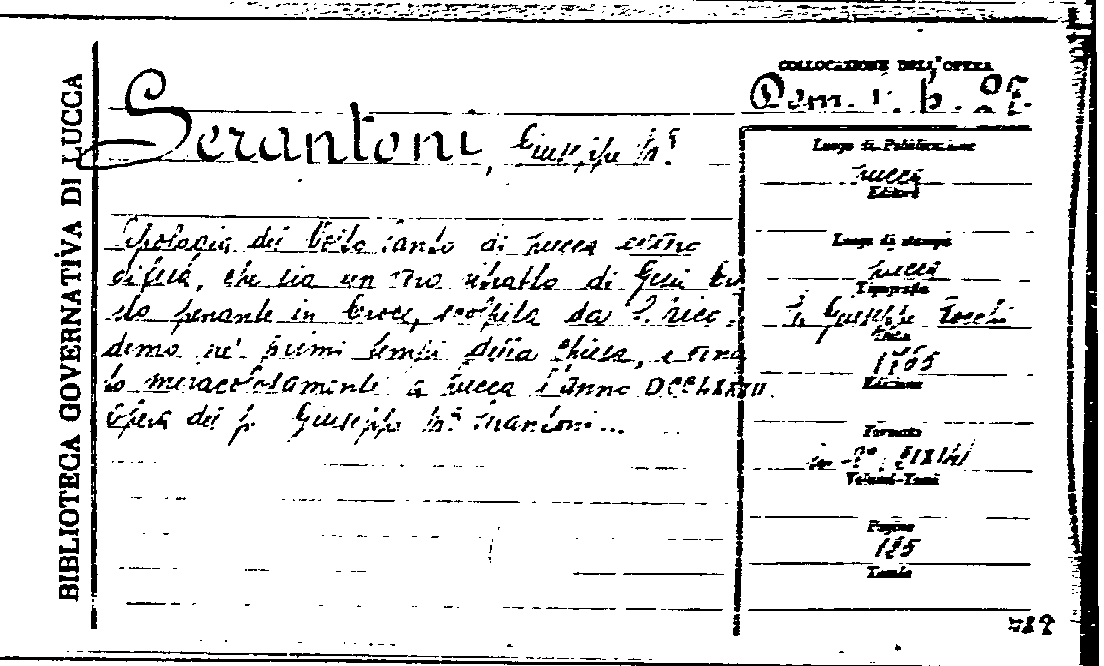 BIBLIOTECA GOVERNATIVA DI LUCCA
COLLOCAZIONE DELL'OPERA
Serantoni, Giuseppe Mª
Apologia del Volto santo di Lucca
difesa, che sia un ritratto di Gesù Cri
sto penante in Croce, scolpita da S. Nico-
demo ne' primi tempi della Chiesa, e
lo miracolosamente a Lucca l'anno DCCLXXXII.
Opera del p. Giuseppe Mª Serantoni...
Luogo di Pubblicazione
Lucca
Editore
Luogo di stampa
Lucca
Tipografia
Giuseppe Rocchi
Data
Edizione
Formato
Volumi-Tomi
Pagine
Tavole